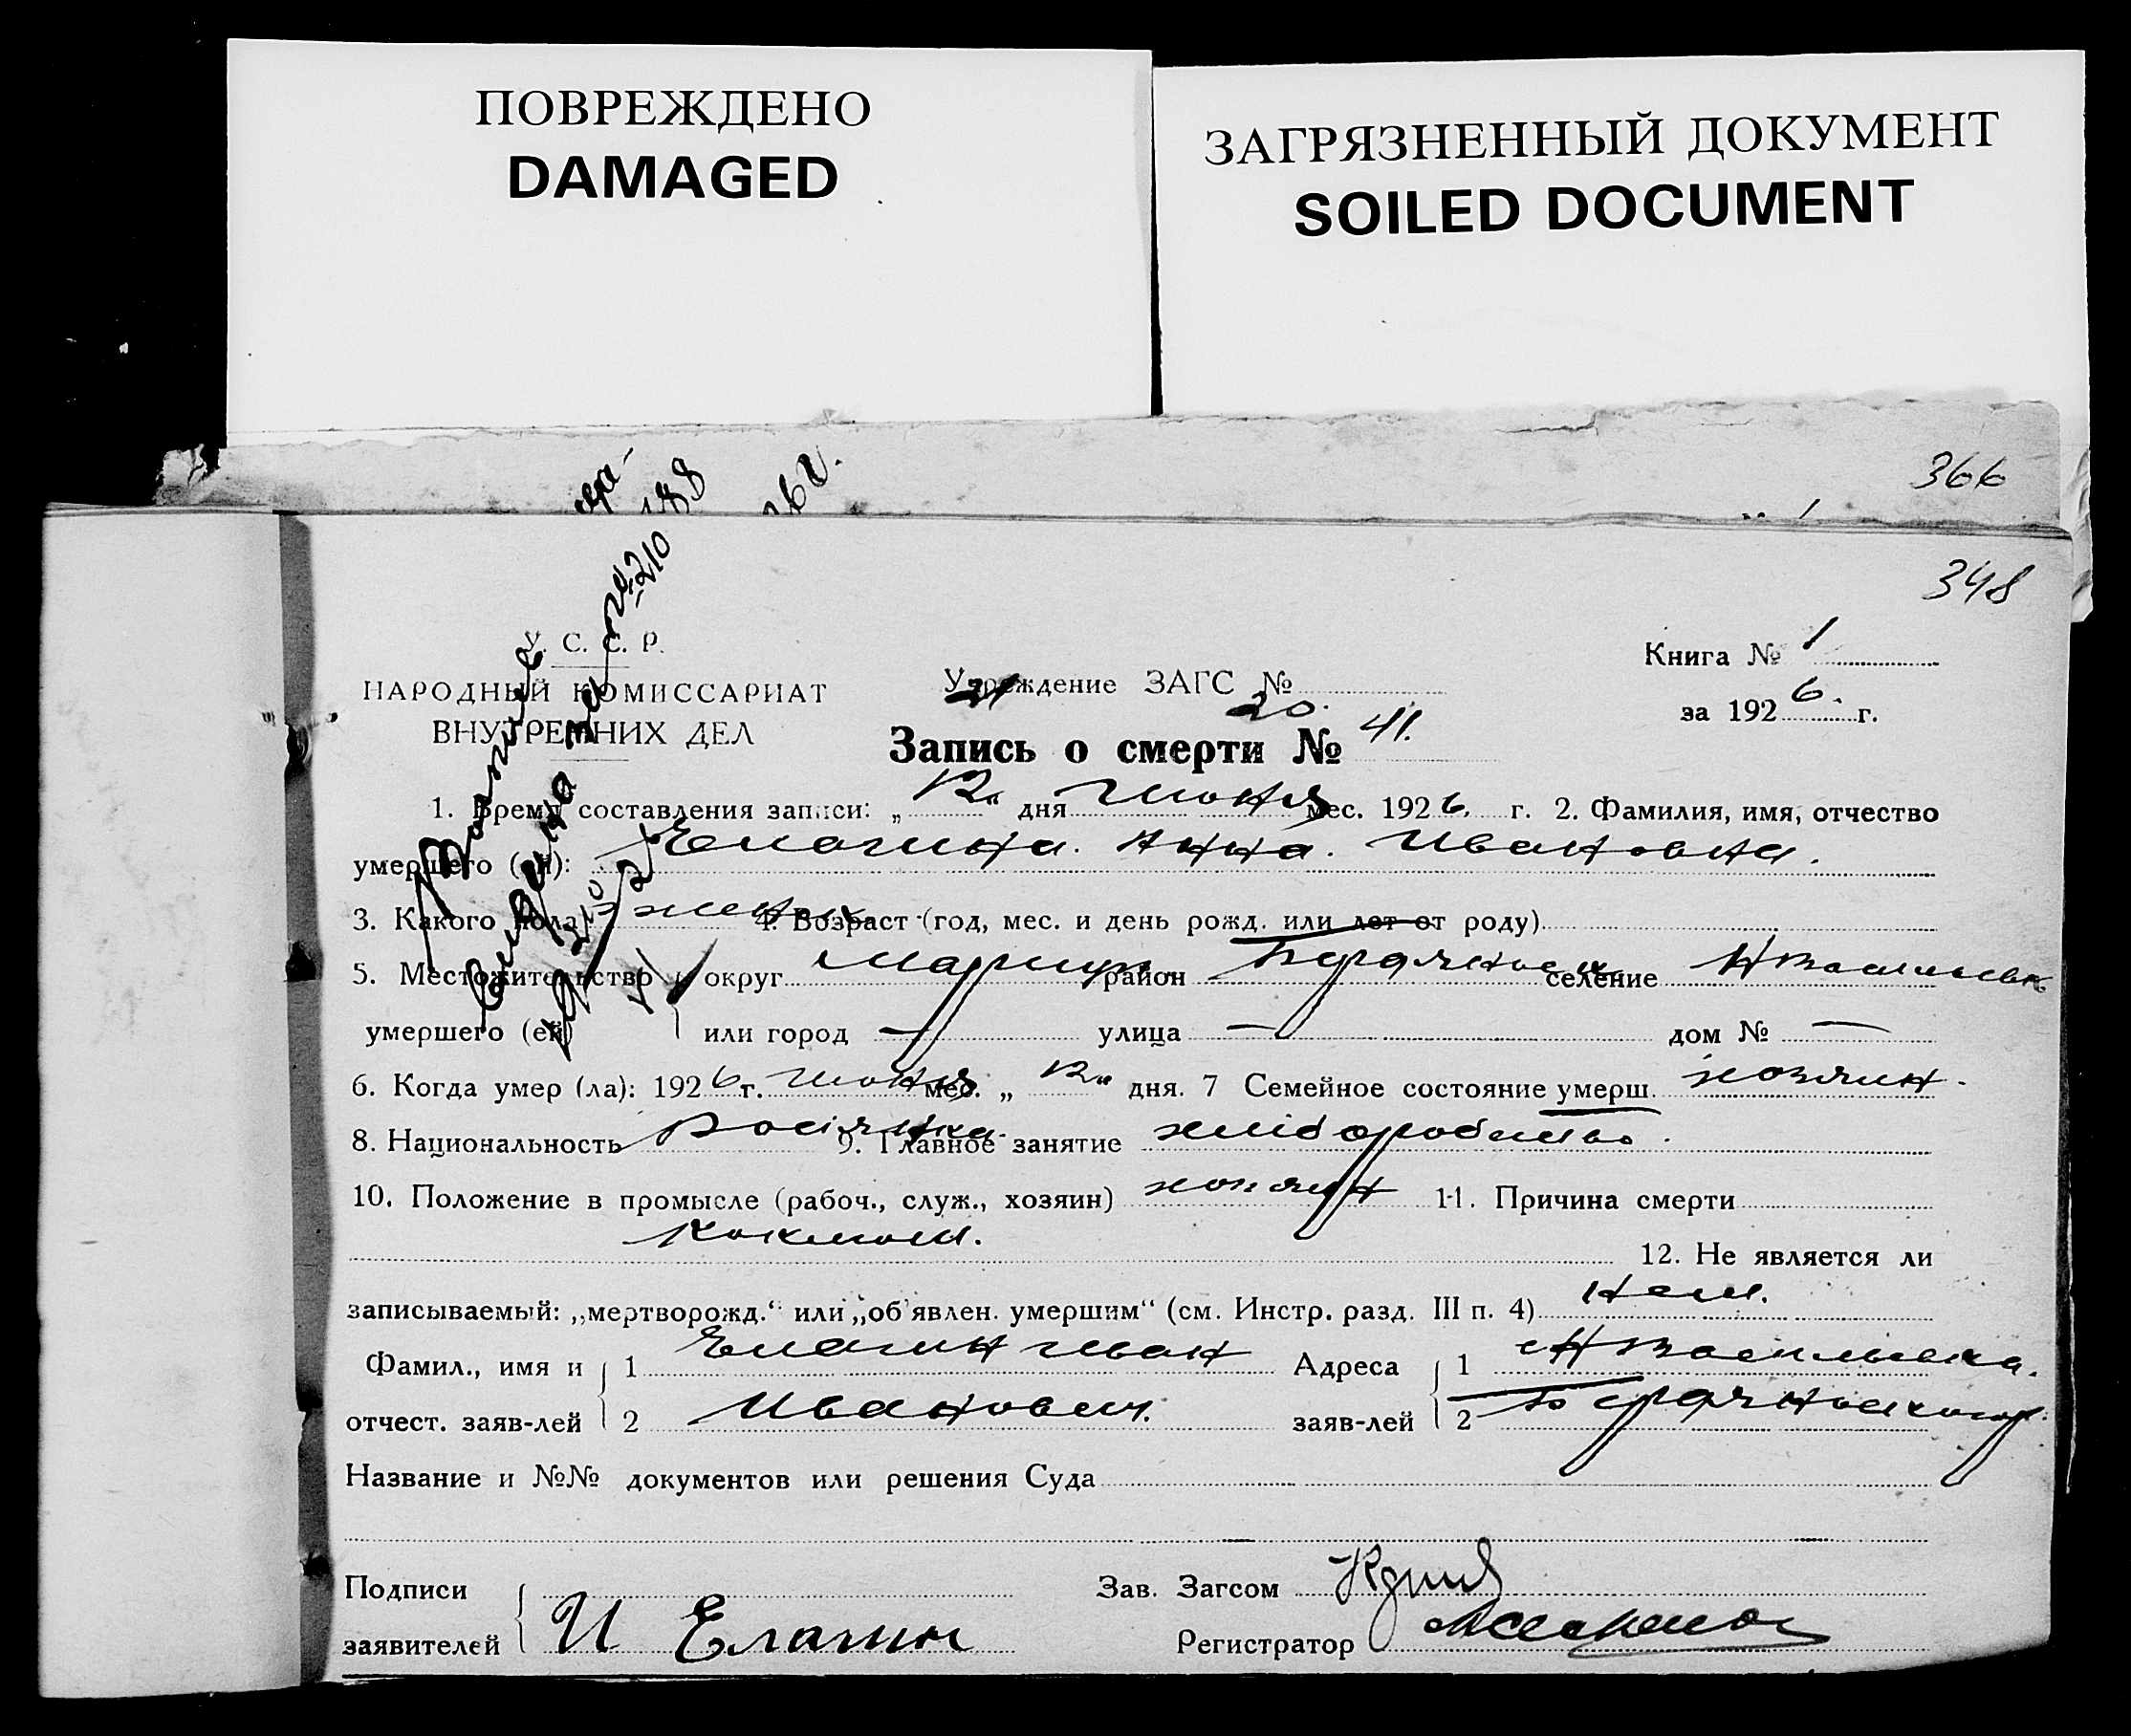 ПОВРЕЖДЕНО
DAMAGED
ЗАГРЯЗНЕННЫЙ ДОКУМЕНТ
SOILED DOCUMENT
366
348
188
№ 210
У. С. С. Р.
НАРОДНЫЙ КОМИССАРИАТ
ВНУТРЕННИХ ДЕЛ
Учреждение ЗАГС №
Книга № 1
за 1926. г.
20.
Запись о смерти № 41.
1. Время составления записи: „12“ дня Июня мес. 1926. г. 2. Фамилия, имя, отчество
умершего (ей): Елагина. Анна. Ивановна.
3. Какого пола женск 4. Возраст (год, мес. и день рожд. или лет от роду)
5. Местожительство округ Мариуп. район селение Н Васильевк
умершего (ей) или город — улица — дом № —
6. Когда умер (ла): 1926 г. Июня мес. „12“ дня. 7 Семейное состояние умерш. хозяин.
8. Национальность Росіянка 9. Главное занятие хліборобство.
10. Положение в промысле (рабоч., служ., хозяин) хозяин 11. Причина смерти
Коклюш.
12. Не является ли
записываемый: „мертворожд.“ или „об'явлен. умершим“ (см. Инстр. разд. III п. 4) Нет.
Фамил., имя и 1 Елагин Иван Адреса 1 с Н Васильевка.
отчест. заяв-лей 2 Иванович. заяв-лей 2
Название и №№ документов или решения Суда
Подписи Зав. Загсом
заявителей И Елагин Регистратор